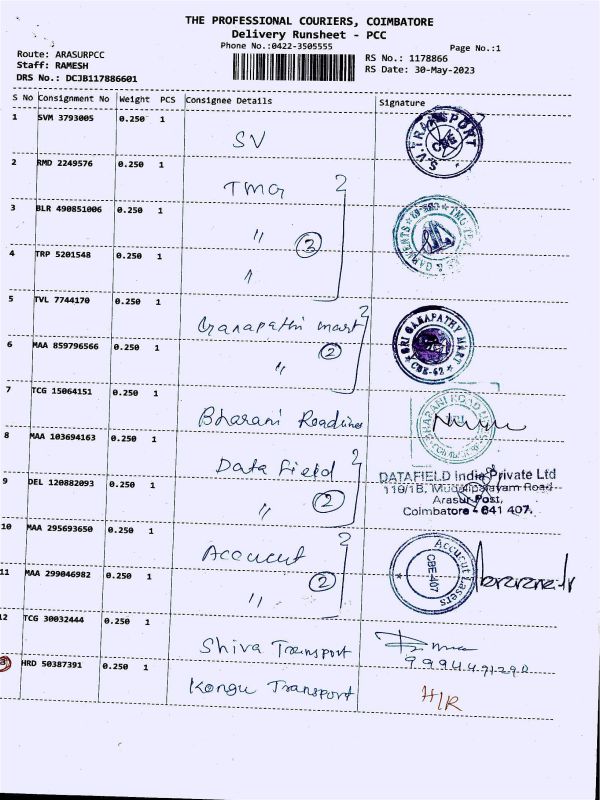 THE PROFESSIONAL COURIERS, COIMBATORE
Delivery Runsheet - PCC
Phone No.:0422-3505555
Page No.:1
Route: ARASURPCC
Staff: RAMESH
DRS No.: DCJB117886601
RS No.: 1178866
RS Date: 30-May-2023
S No Consignment No Weight PCS Consignee Details Signature
1 SVM 3793005 0.250 1
SV
S.V TRANSPORT
CBE
2 RMD 2249576 0.250 1
TMG 2
3 BLR 490851006 0.250 1
" 3
& GARMENTS
4 TRP 5201548 0.250 1
"
5 TVL 7744170 0.250 1
Ganapathi mart 2
SRI GANAPATHY MART
CBE-62
6 MAA 859796566 0.250 1
" 2
7 TCG 15064151 0.250 1
Bharani Roadlines
BHARANI ROAD LINES
8 MAA 103694163 0.250 1
Data Field 2
DATAFIELD India Private Ltd
119/1B, Mudalipalayam Road
Arasur Post,
Coimbatore - 641 407.
9 DEL 120882093 0.250 1
" 2
10 MAA 295693650 0.250 1
Accucut 2
Accucut Lasers
CBE-407
11 MAA 299046982 0.250 1
" 2
12 TCG 30032444 0.250 1
Shiva Transport
HRD 50387391 0.250 1
Kongu Transport
H/R